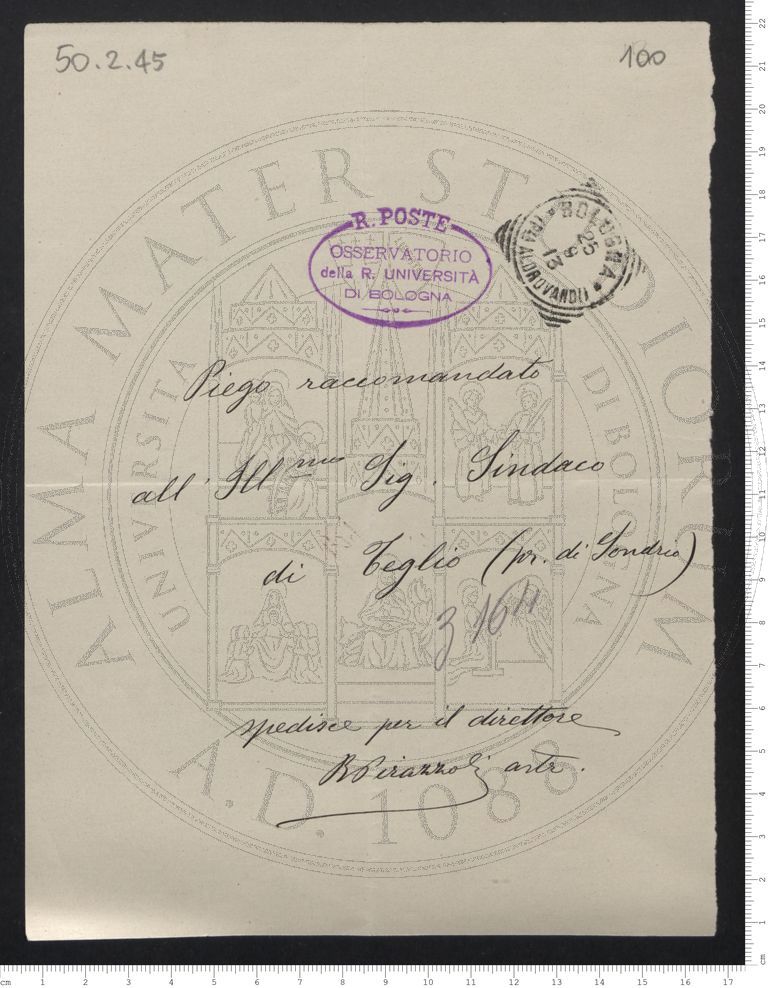 50.2.45
100
R. POSTE
OSSERVATORIO
della R. UNIVERSITÀ
DI BOLOGNA
BOLOGNA
25 9 13
ALDROVANDI
Piego raccomandato
all' Ill.mo Sig. Sindaco
di Teglio (pr. di Sondrio)
3164
spedisce per il direttore
R Pirazzoli astr.
ALMA MATER STUDIORUM
UNIVERSITA DI BOLOGNA
A.D. 1088